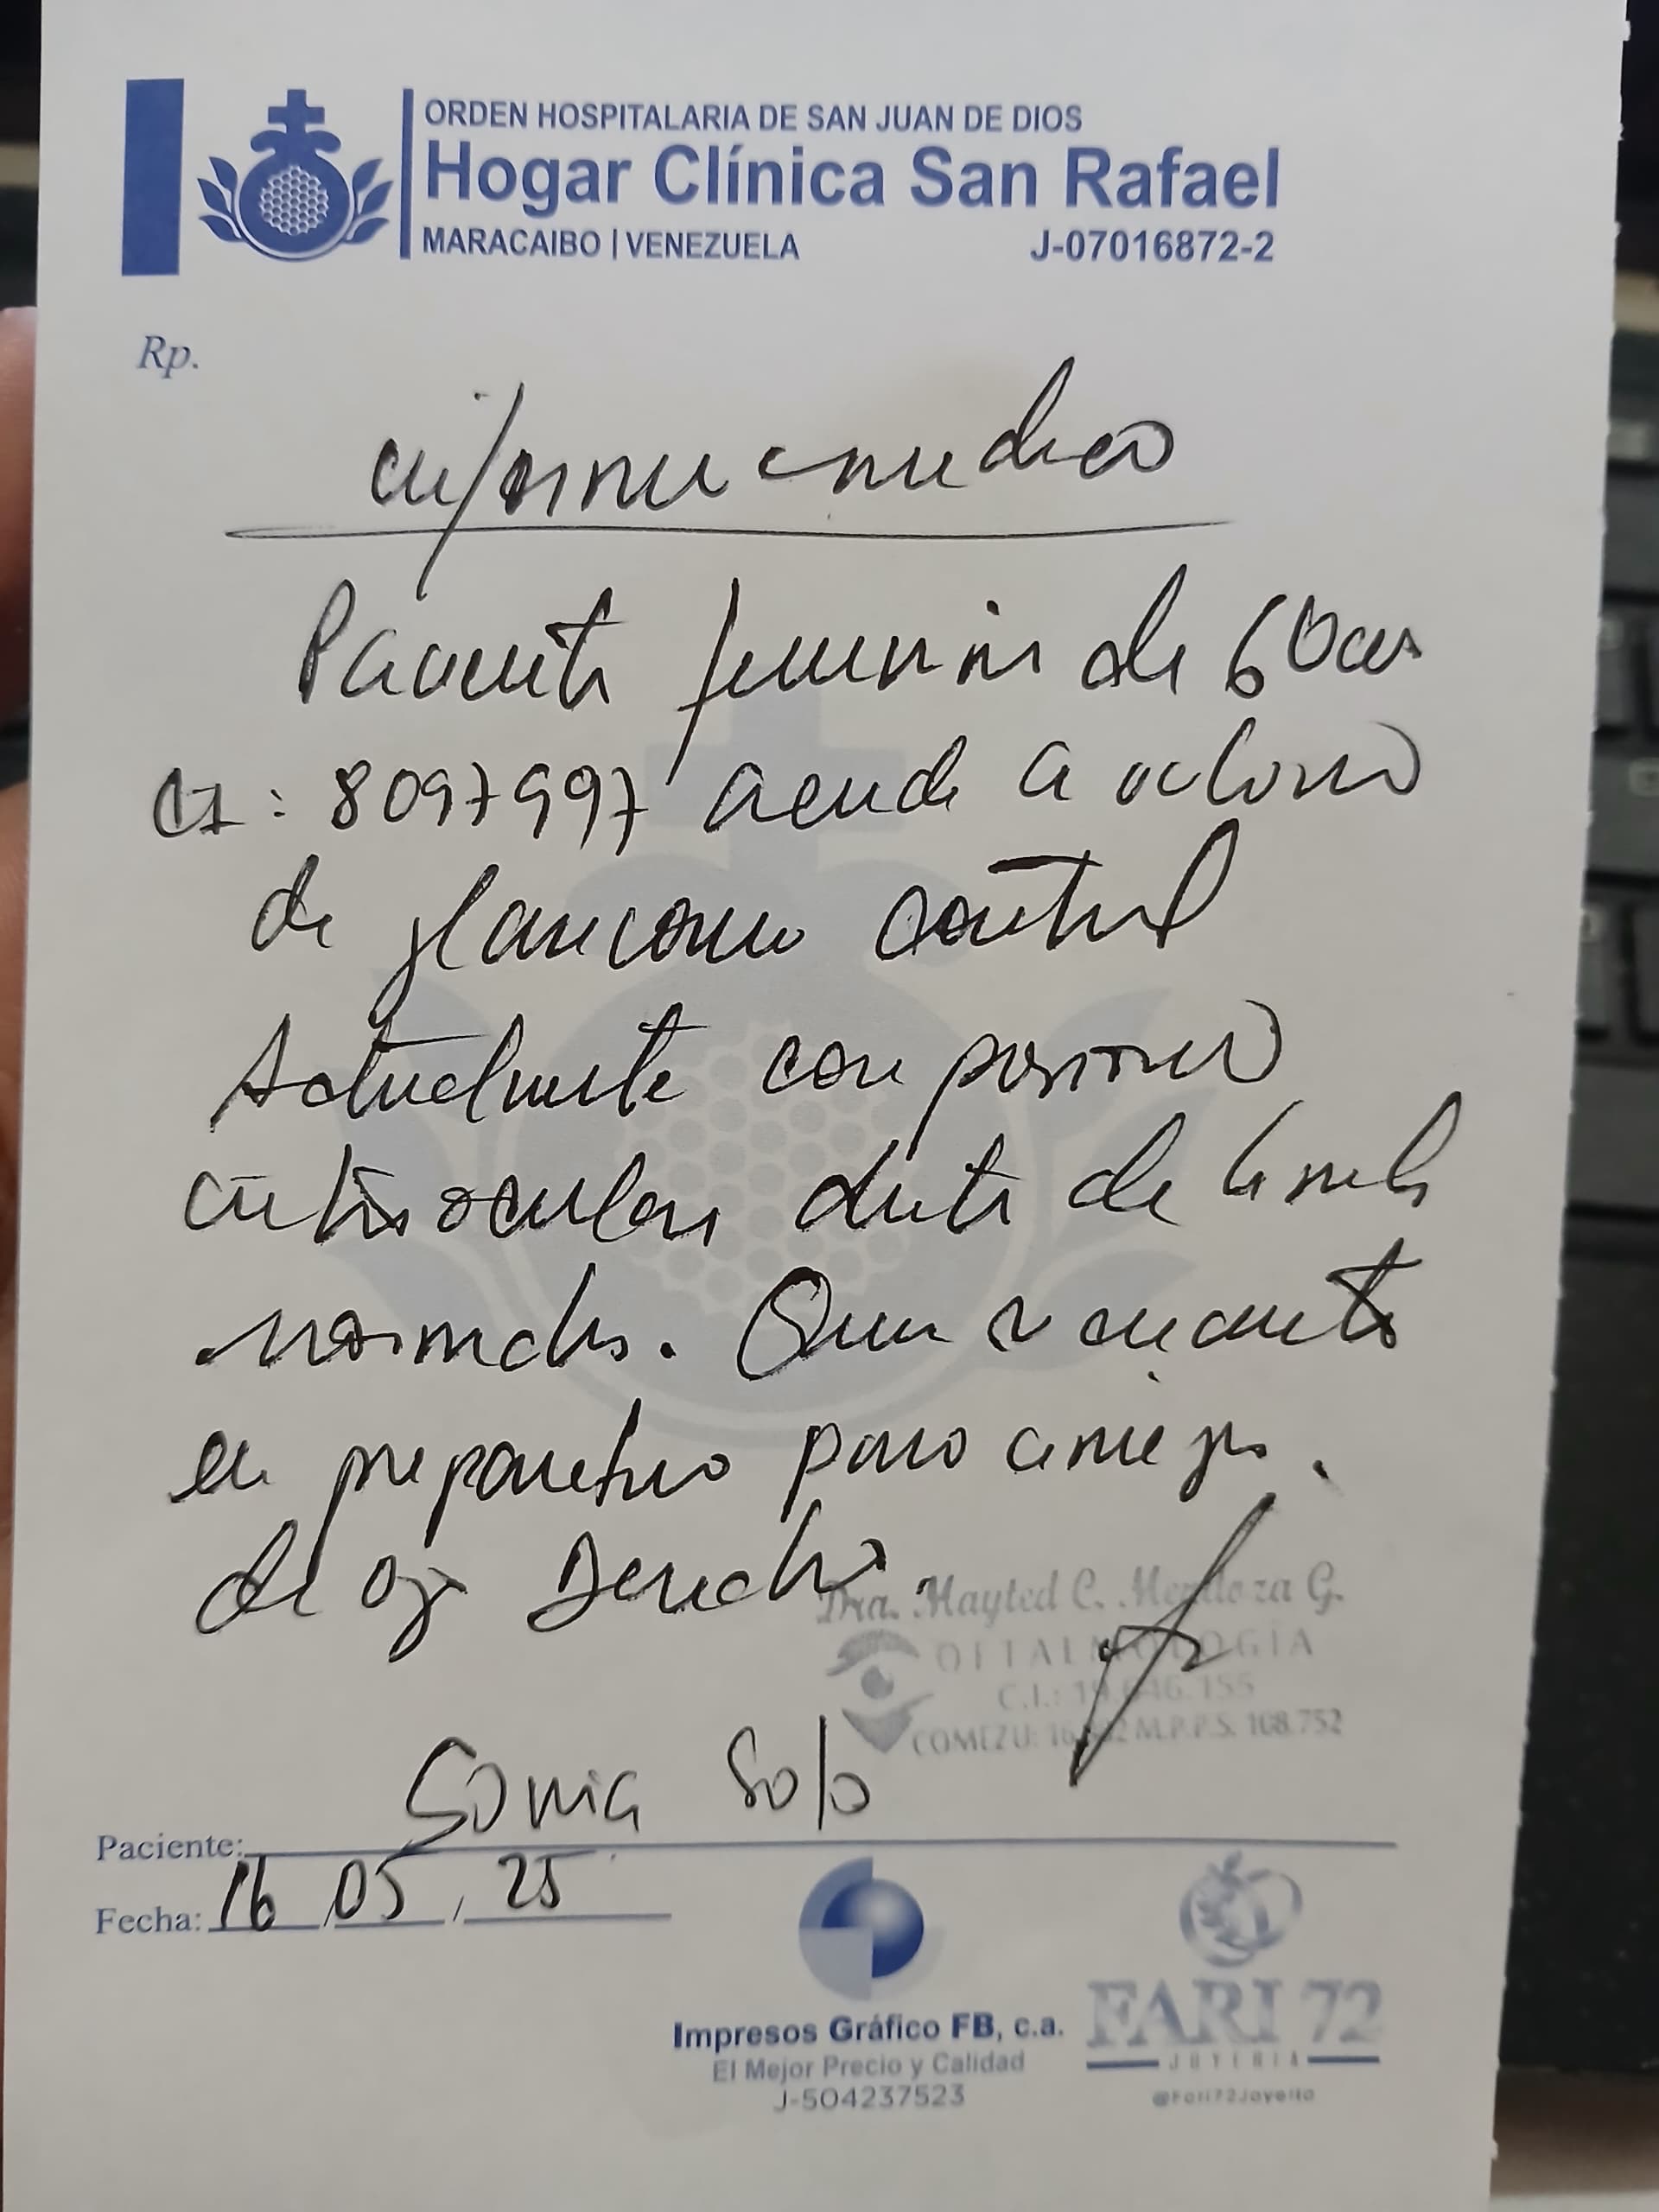 ORDEN HOSPITALARIA DE SAN JUAN DE DIOS
Hogar Clínica San Rafael
MARACAIBO | VENEZUELA J-07016872-2
Rp.
informe medico
Paciente femenina de 60
CI: 8097997 acude a
de glaucoma control
Actualmente con
intraocular dentro de limites
normales. Quien se encuentra
en preparativo para cirugia.
de ojo Derecho
Dra. Mayted C. Mendoza G.
OFTALMOLOGÍA
C.I.:
COMEZU: M.P.P.S. 108.752
Paciente: Sonia
Fecha: 16/05/25
Impresos Gráfico FB, c.a.
El Mejor Precio y Calidad
J-504237523
FARI 72
JOYERIA